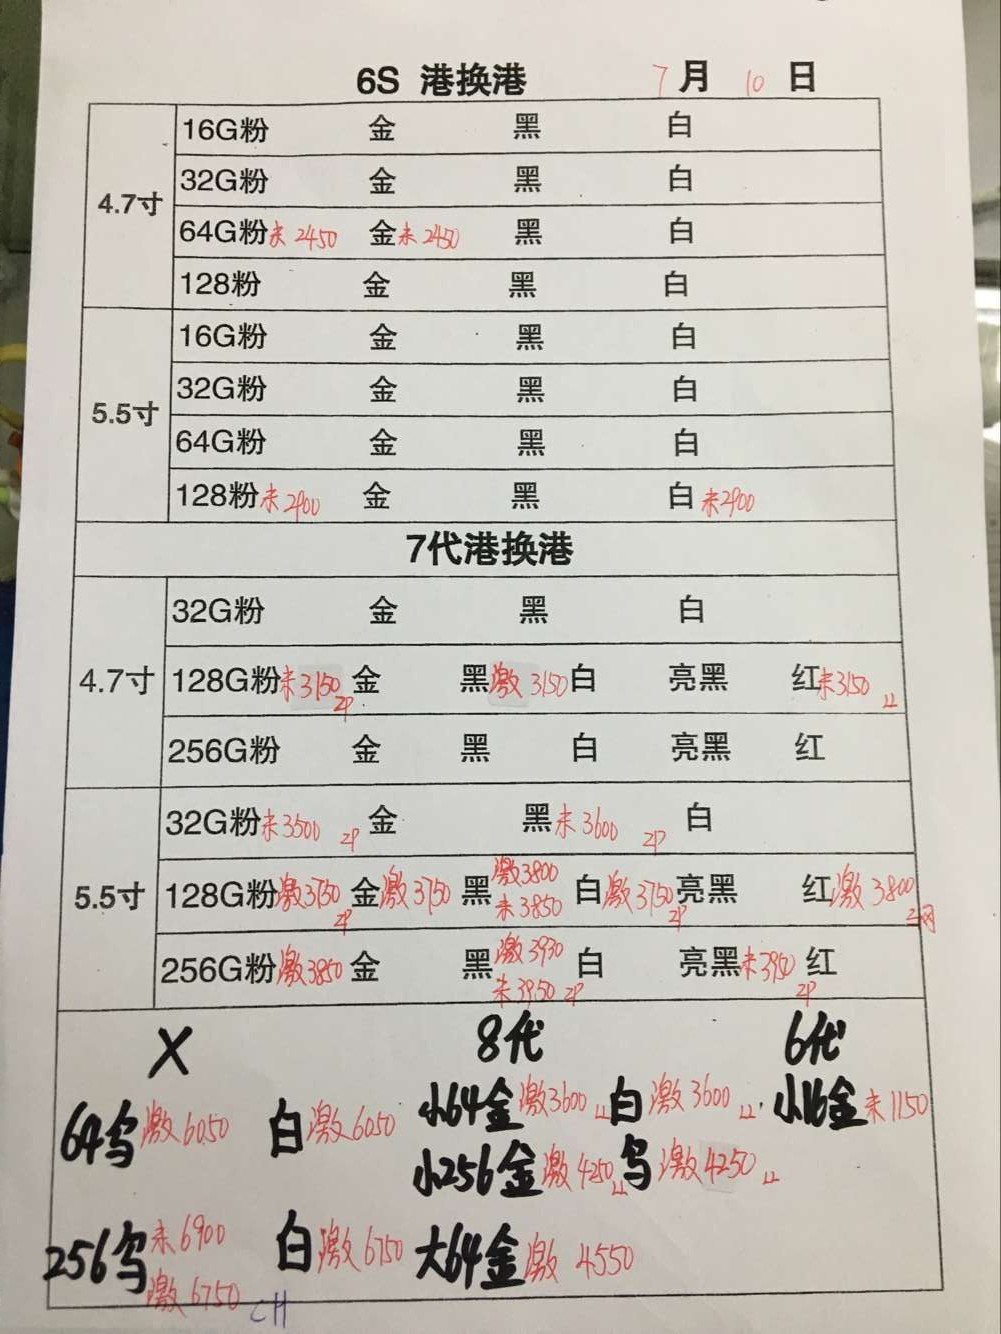 6S 港换港 7月10日
16G粉 金 黑 白
32G粉 金 黑 白
4.7寸
64G粉未2450 金未2450 黑 白
128粉 金 黑 白
16G粉 金 黑 白
32G粉 金 黑 白
5.5寸
64G粉 金 黑 白
128粉未2900 金 黑 白未2900
7代港换港
32G粉 金 黑 白
4.7寸 128G粉未3150 ZP 金 黑激3150 白 亮黑 红未3150 LL
256G粉 金 黑 白 亮黑 红
32G粉未3500 ZP 金 黑未3600 ZP 白
5.5寸 128G粉激3750 ZP 金激3750 黑激3800 未3850 白激3750 ZP 亮黑 红激3800
256G粉激3850 金 黑激3930 未3950 ZP 白 亮黑未3950 ZP 红
X 8代 6代
64乌激6050 白激6050 小64金激3600 LL 白激3600 LL 小16金未1150
小256金激4250 LL 乌激4250 LL
256乌未6900 激6750 白激6750 大64金激4550
CH